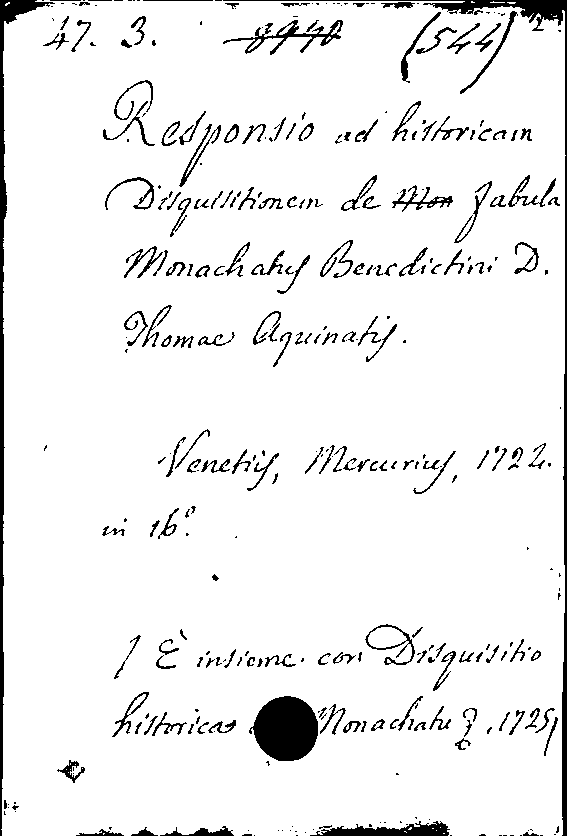 47. 3. 8970 (544) 12
Responsio ad historicam
Disquisitionem de Mon fabula
Monachatus Benedictini D.
Thomae Aquinatis.
Venetiis, Mercurius, 1724.
in 16º.
/ È insieme con Disquisitio
historica Monachatu 1725/